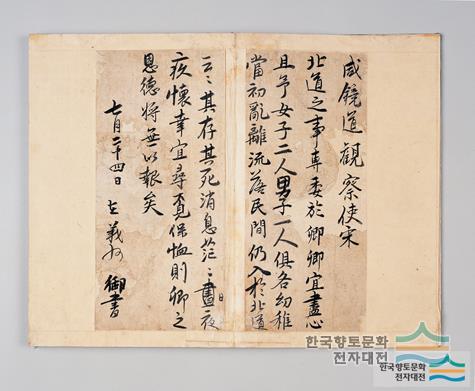 咸镜道觀察使宋
北道之事專委於卿卿宜盡心
且予女子二人男子一人俱各幼稚
當初亂離流落民間仍入於北道
云〻其存其死消息茫〻晝夜
疚懷幸宜尋覓保恤則卿之
恩德將無以報矣
七月二十四日 在義州 御書
한국향토문화
전자대전
한국향토문화
전자대전